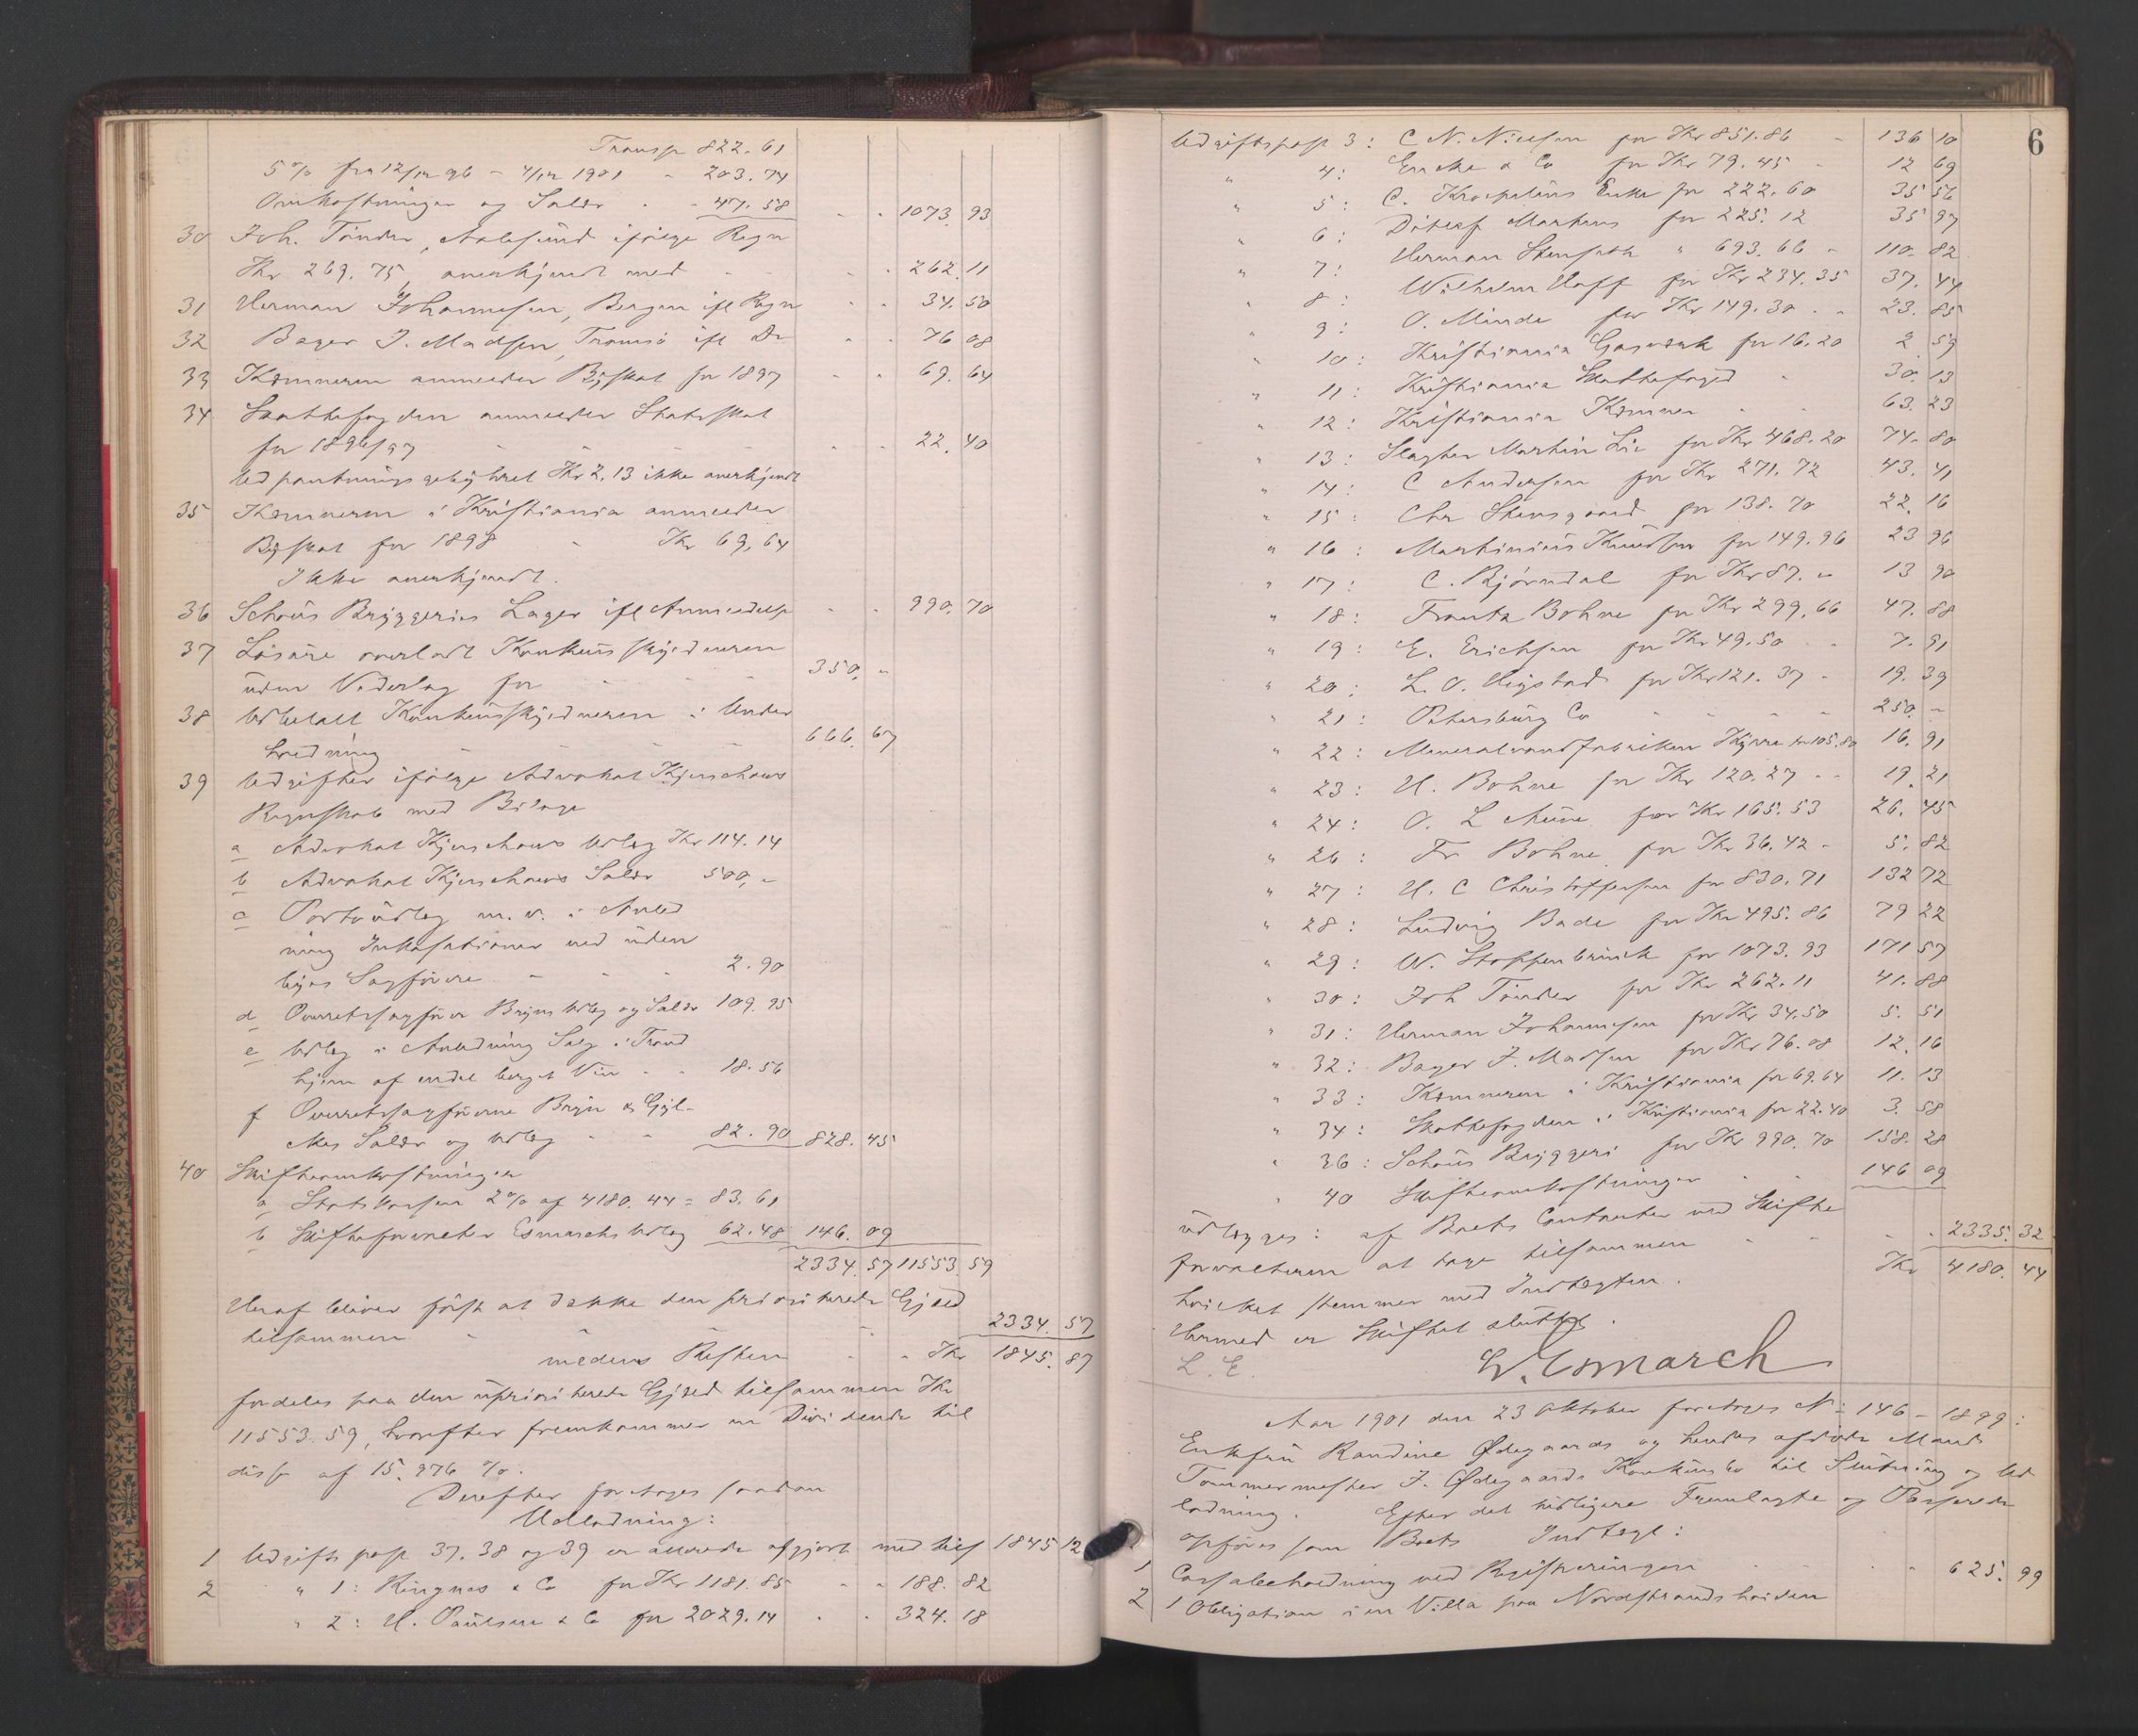 Transp 822.61
5 % fra 12/12 96 - 4/12 1901 - 203.74
Omkostninger og Salær - - 47.58 - - 1073.93
30 Joh. Tönder, Aalesund ifølge Regn
Kr 269.75, anerkjendt med - - - 262.11
31 Herman Johannesen, Bergen ifl Regn - - 34.50
32 Bager J. Madsen, Tromsö ifl Do - - 76 08
33 Kæmneren anmelder Byskat for 1897 - - 69.64
34 Skattefogden anmelder Statsskat
for 1896/97 - - - - 22.40
Udpantningsgebyhret Kr 2.13 ikke anerkjendt
35 Kæmneren i Kristiania anmelder
Byskat for 1898 - Kr 69,64
Ikke anerkjendt.
36 Schous Bryggeries Lager ifl Anmeldelse - - 990.70
37 Løsøre overladt Konkursskyldneren
uden Vederlag for - - - 350,-
38 Udbetalt Konkursskyldneren i Under
holdning - - - 666.67
39 Udgifter ifølge Advokat Kjerschows
Regnskab med Bilage
a Advokat Kjerschows Udlæg Kr 114.14
b Advokat Kjerschows Salær 500,-
c Portoudlæg m.v. i Anled
ning Inkasationer ved uden
byes Sagførere - - - 2.90
d Overretssagfører Bryns Udlæg og Salær 109.95
e Udlæg i Anledning Salg i Trond
hjem af endel beroet Vin - - 18.56
f Overretssagførerne Bryn &
Salær og Udlæg - - 82.90 828.45
40 Skifteomkostninger
a Statskassen 2 % af 4180.44 = 83.61
b Skifteforvalter Esmarchs Udlæg 62.48 146.09
2334.57 11553.59
Heraf bliver først at dække den prioriterede Gjæld
tilsammen - - - 2334.57
medens Resten - - Kr 1845.87
fordeles paa den uprioriterede Gjæld tilsammen Kr
11553.59, hvorefter fremkommer en Dividende til
disse af 15.976 %.
Derefter foretages saadan
Udlodning:
1 Udgifts post 37, 38 og 39 er allerede afgjort med tils 1845 12
2 " 1: Ringnes & Co for Kr 1181.85 - - 188.82
" 2: H. Poulsen & Co for 2029.14 - - 324.18
6
Udgiftspost 3: C N. Nielsen for Kr 851.86 - 136 10
" 4: Encke & Co for Kr 79.45 - 12 69
" 5: C. Kroepeliens Enke for 222.60 35 56
" 6: Ditlef Martens for 225.12 35 97
" 7: Herman Stenseth " 693.66 - 110.82
" 8: Wilhelm Hoff for Kr 234.35 37.44
" 9: O. Minde for Kr 149.30 - - 23.85
" 10: Kristiania Gasværk for 16.20 2 59
" 11: Kristiania Skattefoged - 30.13
" 12: Kristiania Kæmner - - 63.23
" 13: Slagter Martin Lie for Kr 468.20 74.80
" 14: C Andersen for Kr 271.72 43.41
" 15: Chr Stensgaard for 138.70 22.16
" 16: Martinius Knudsen for 149.96 23 96
" 17: C. Bjørndal for Kr 87.- 13 90
" 18: Frantz Bohne for Kr 299,66 47.88
" 19: E. Erichsen for Kr 49.50 - - 7.91
" 20: L. O. Rigstad for Kr 121.37 - 19.39
" 21: Petersburg Co - - - - 250.-
" 22: Mineralvandfabriken Kyrre for 105.80 16.91
" 23: H. Bohne for Kr 120.27 - - 19.21
" 24: O. L Aune for Kr 165.53 26.45
" 26: Fr Bohne for Kr 36.42 - 5.82
" 27: H. C Christoffersen for 830.71 132 72
" 28: Ludvig Bade for Kr 495.86 79 22
" 29: W. Stoppenbrink for 1073.93 171 57
" 30: Joh Tönder for Kr 262.11 41.88
" 31: Herman Johannesen for Kr 34.50 5.51
" 32: Bager J. Madsen for Kr 76.08 12.16
" 33: Kæmneren i Kristiania for 69.64 11.13
" 34: Skattefogden i Kristiania for 22.40 3.58
" 36: Schous Bryggeri for Kr 990.70 158.28
" 40 Skifteomkostninger - - 146 09
udlægges: af Boets Contanter ved Skifte
forvalteren at tage tilsammen - - - - 2335.32
hvilket stemmer med Indtægten. Kr 4180.44
Hermed er Skiftet sluttet.
L. E. W. Esmarch
Aar 1901 den 23 Oktober foretoges No 146 - 1899:
Enkefru Randine Ødegaards og hendes afdøde Mand
Tømmermester J. Ødegaards Konkursbo til Slutning og Ud
lodning. Efter det tidligere Fremlagte og Passerede
opføres som Boets Indtægt:
1 Cassabeholdning ved Registreringen - - - 625.99
2 1 Obligation i en Villa paa Nordstrandshøiden